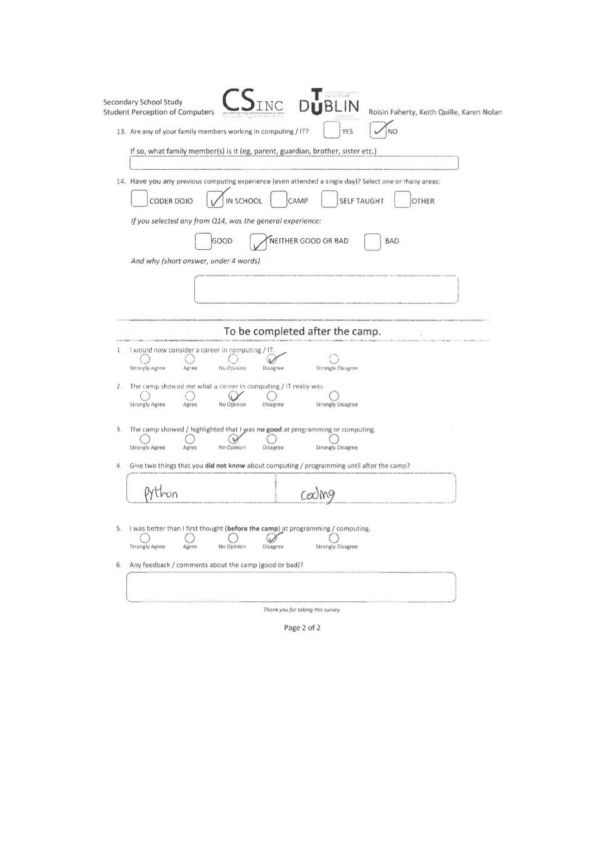 Secondary School Study
Student Perception of Computers
CSINC
TU DUBLIN
Roisin Faherty, Keith Quille, Karen Nolan
13. Are any of your family members working in computing / IT? YES NO
If so, what family member(s) is it (eg, parent, guardian, brother, sister etc.)
14. Have you any previous computing experience (even attended a single day)? Select one or many areas:
CODER DOJO IN SCHOOL CAMP SELF TAUGHT OTHER
If you selected any from Q14, was the general experience:
GOOD NEITHER GOOD OR BAD BAD
And why (short answer, under 4 words)
To be completed after the camp.
1. I would now consider a career in computing / IT.
Strongly Agree Agree No Opinion Disagree Strongly Disagree
2. The camp showed me what a career in computing / IT really was.
Strongly Agree Agree No Opinion Disagree Strongly Disagree
3. The camp showed / highlighted that I was no good at programming or computing.
Strongly Agree Agree No Opinion Disagree Strongly Disagree
4. Give two things that you did not know about computing / programming until after the camp?
Python coding
5. I was better than I first thought (before the camp) at programming / computing.
Strongly Agree Agree No Opinion Disagree Strongly Disagree
6. Any feedback / comments about the camp (good or bad)?
Thank you for taking this survey.
Page 2 of 2